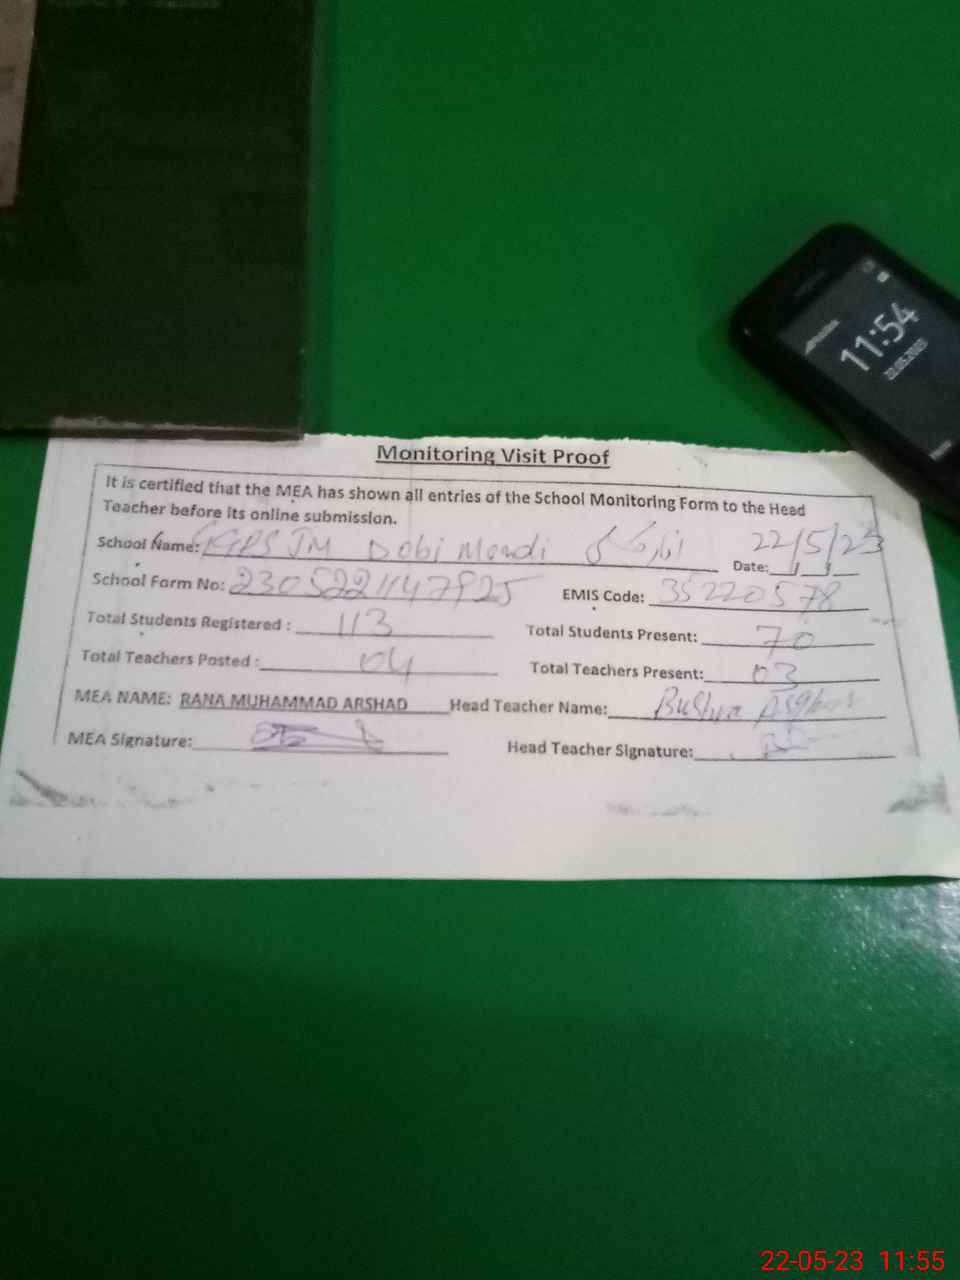 11:54
22.05.2023
Monitoring Visit Proof
It is certified that the MEA has shown all entries of the School Monitoring Form to the Head
Teacher before its online submission.
School Name: GGPS JM Dobi Mandi Date: 22/5/23
School Form No: 2305221147925 EMIS Code: 35220578
Total Students Registered : 113 Total Students Present: 70
Total Teachers Posted : 04 Total Teachers Present: 03
MEA NAME: RANA MUHAMMAD ARSHAD Head Teacher Name: Bushra Asghar
MEA Signature: Head Teacher Signature:
22-05-23 11:55